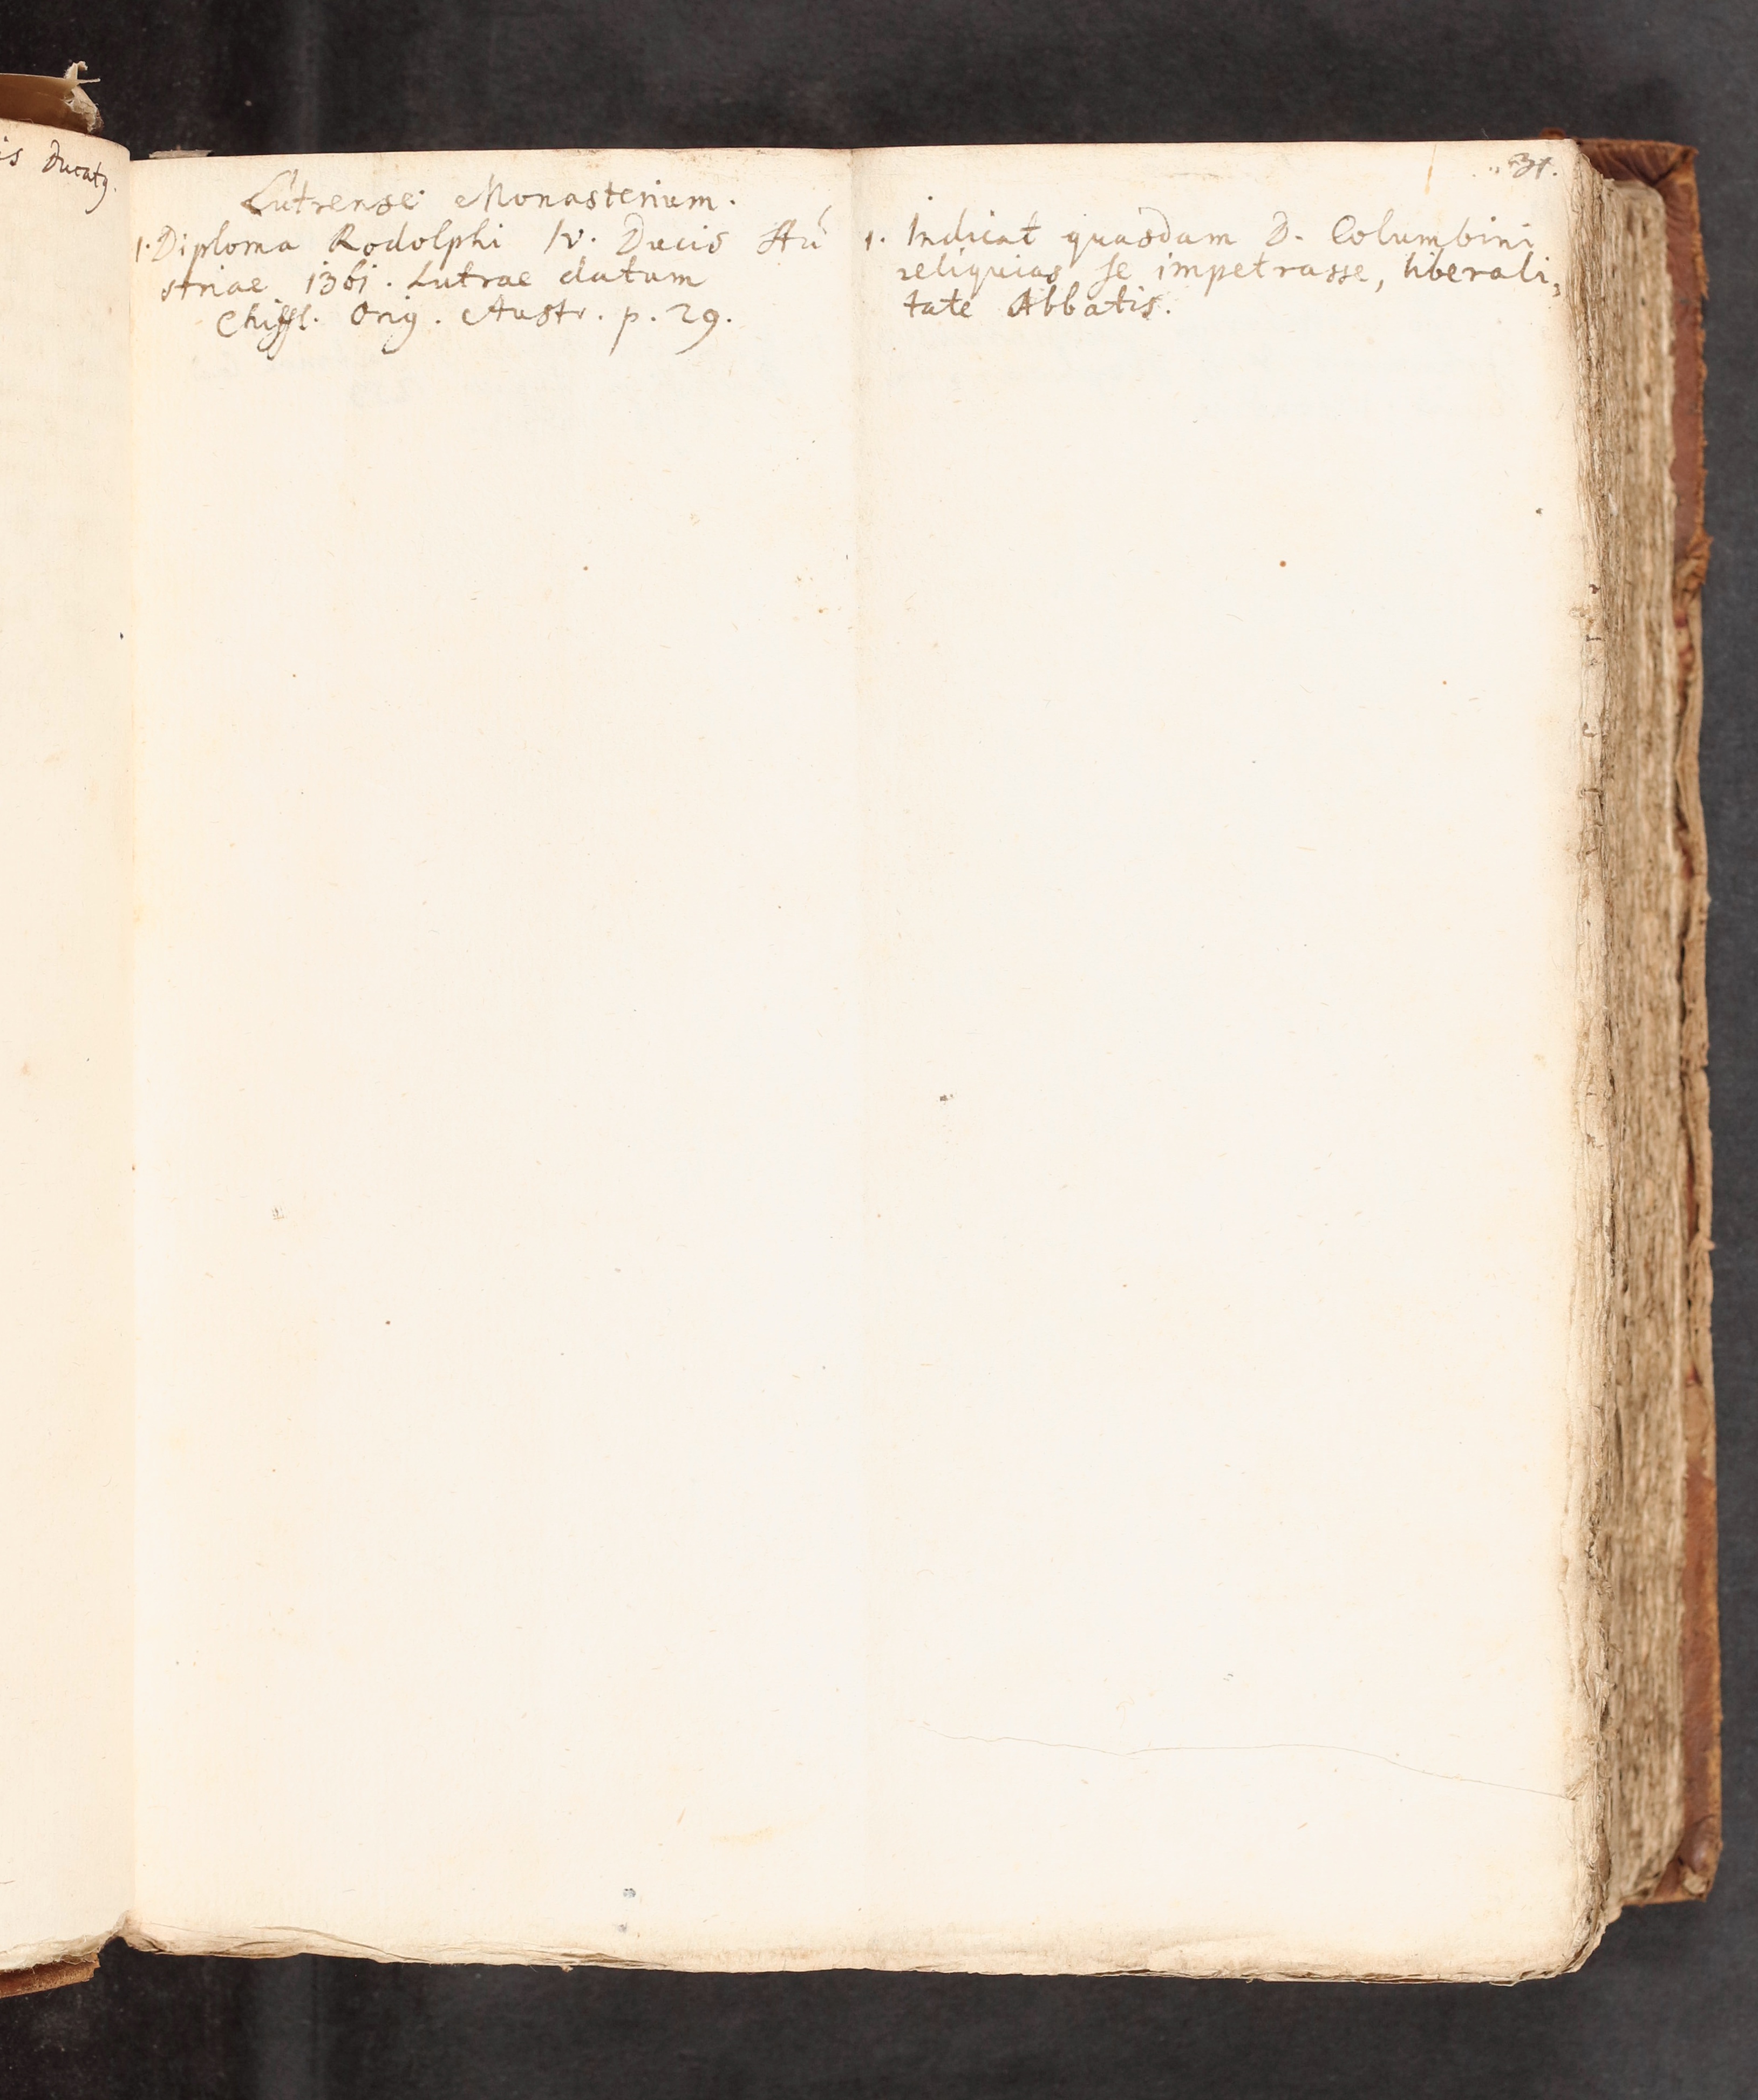 is Ducatq.
31.
Lutrense Monasterium.
1. Diploma Rodolphi IV. Ducis Au
striae 1361. Lutrae datum
Chiffl. Orig. Austr. p. 29.
1. Indicat quasdam D. Columbini
reliquias se impetrasse, liberali,
tate Abbatis.